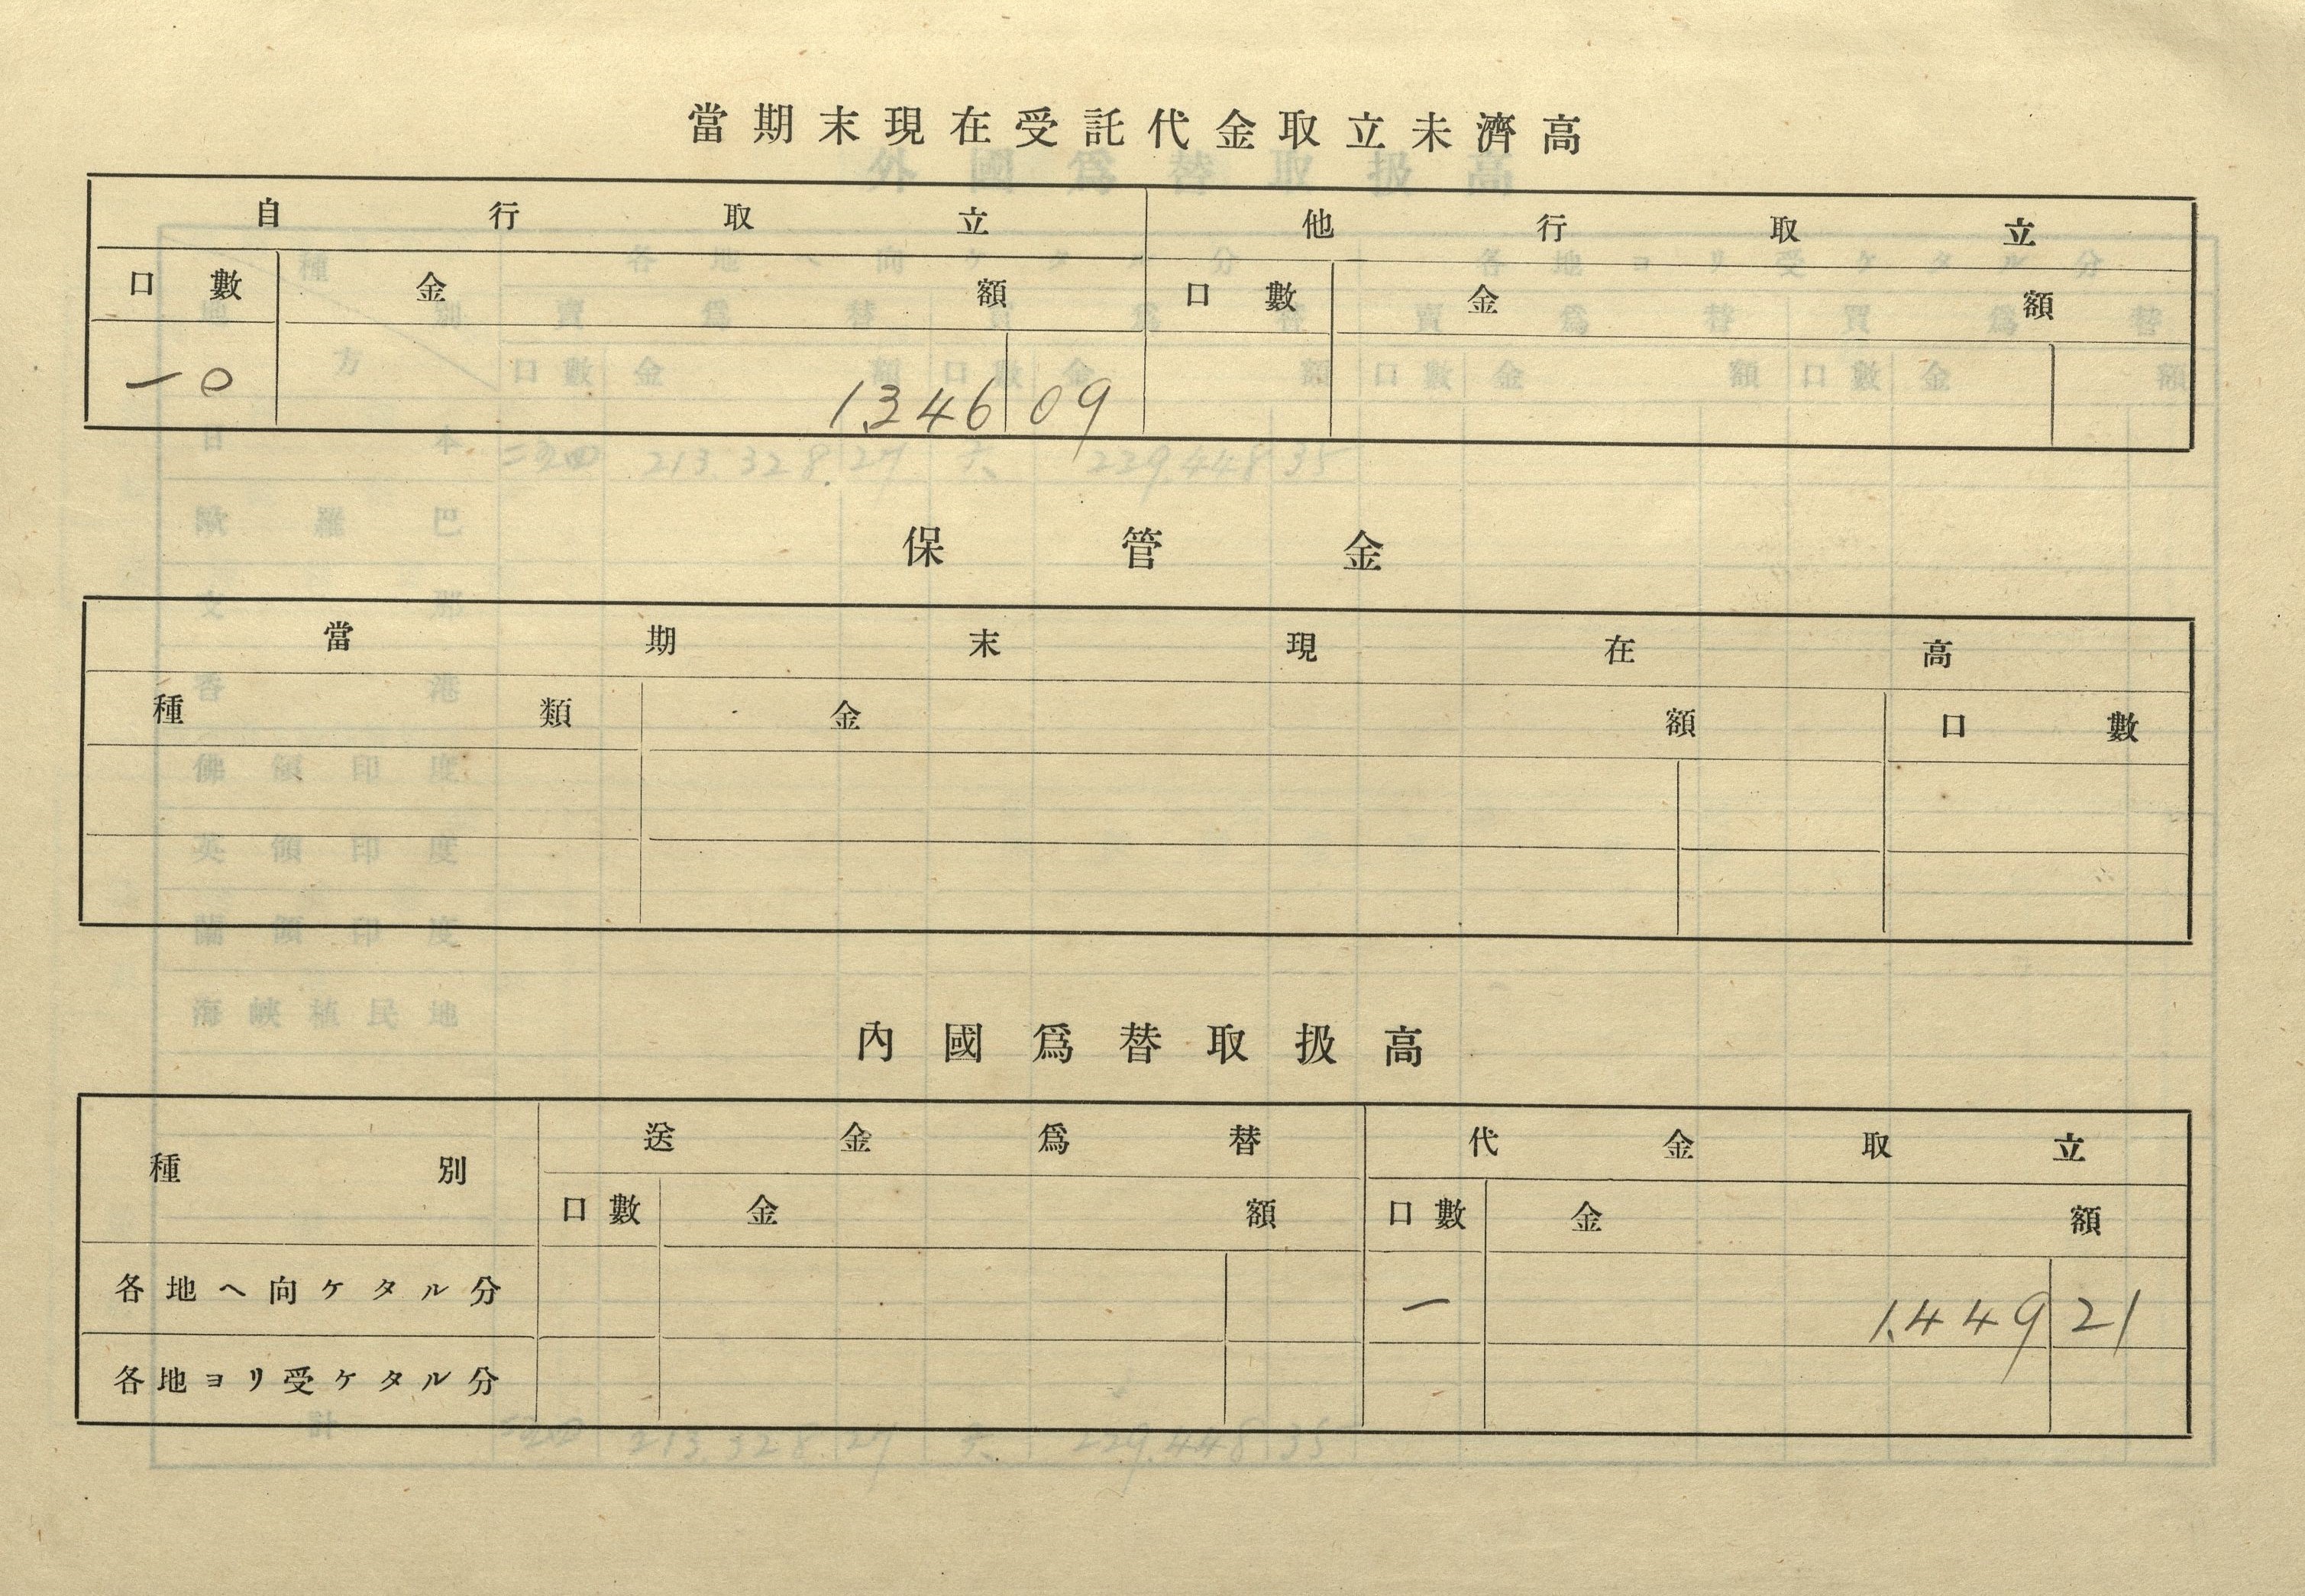 當期末現在受託代金取立未濟高
自行取立 他行取立
口數 金額 口數 金額
一〇 1,346 09
保管金
當期末現在高
種類 金額 口數
內國爲替取扱高
種別 送金爲替 代金取立
口數 金額 口數 金額
各地ヘ向ケタル分 一 1,449 21
各地ヨリ受ケタル分